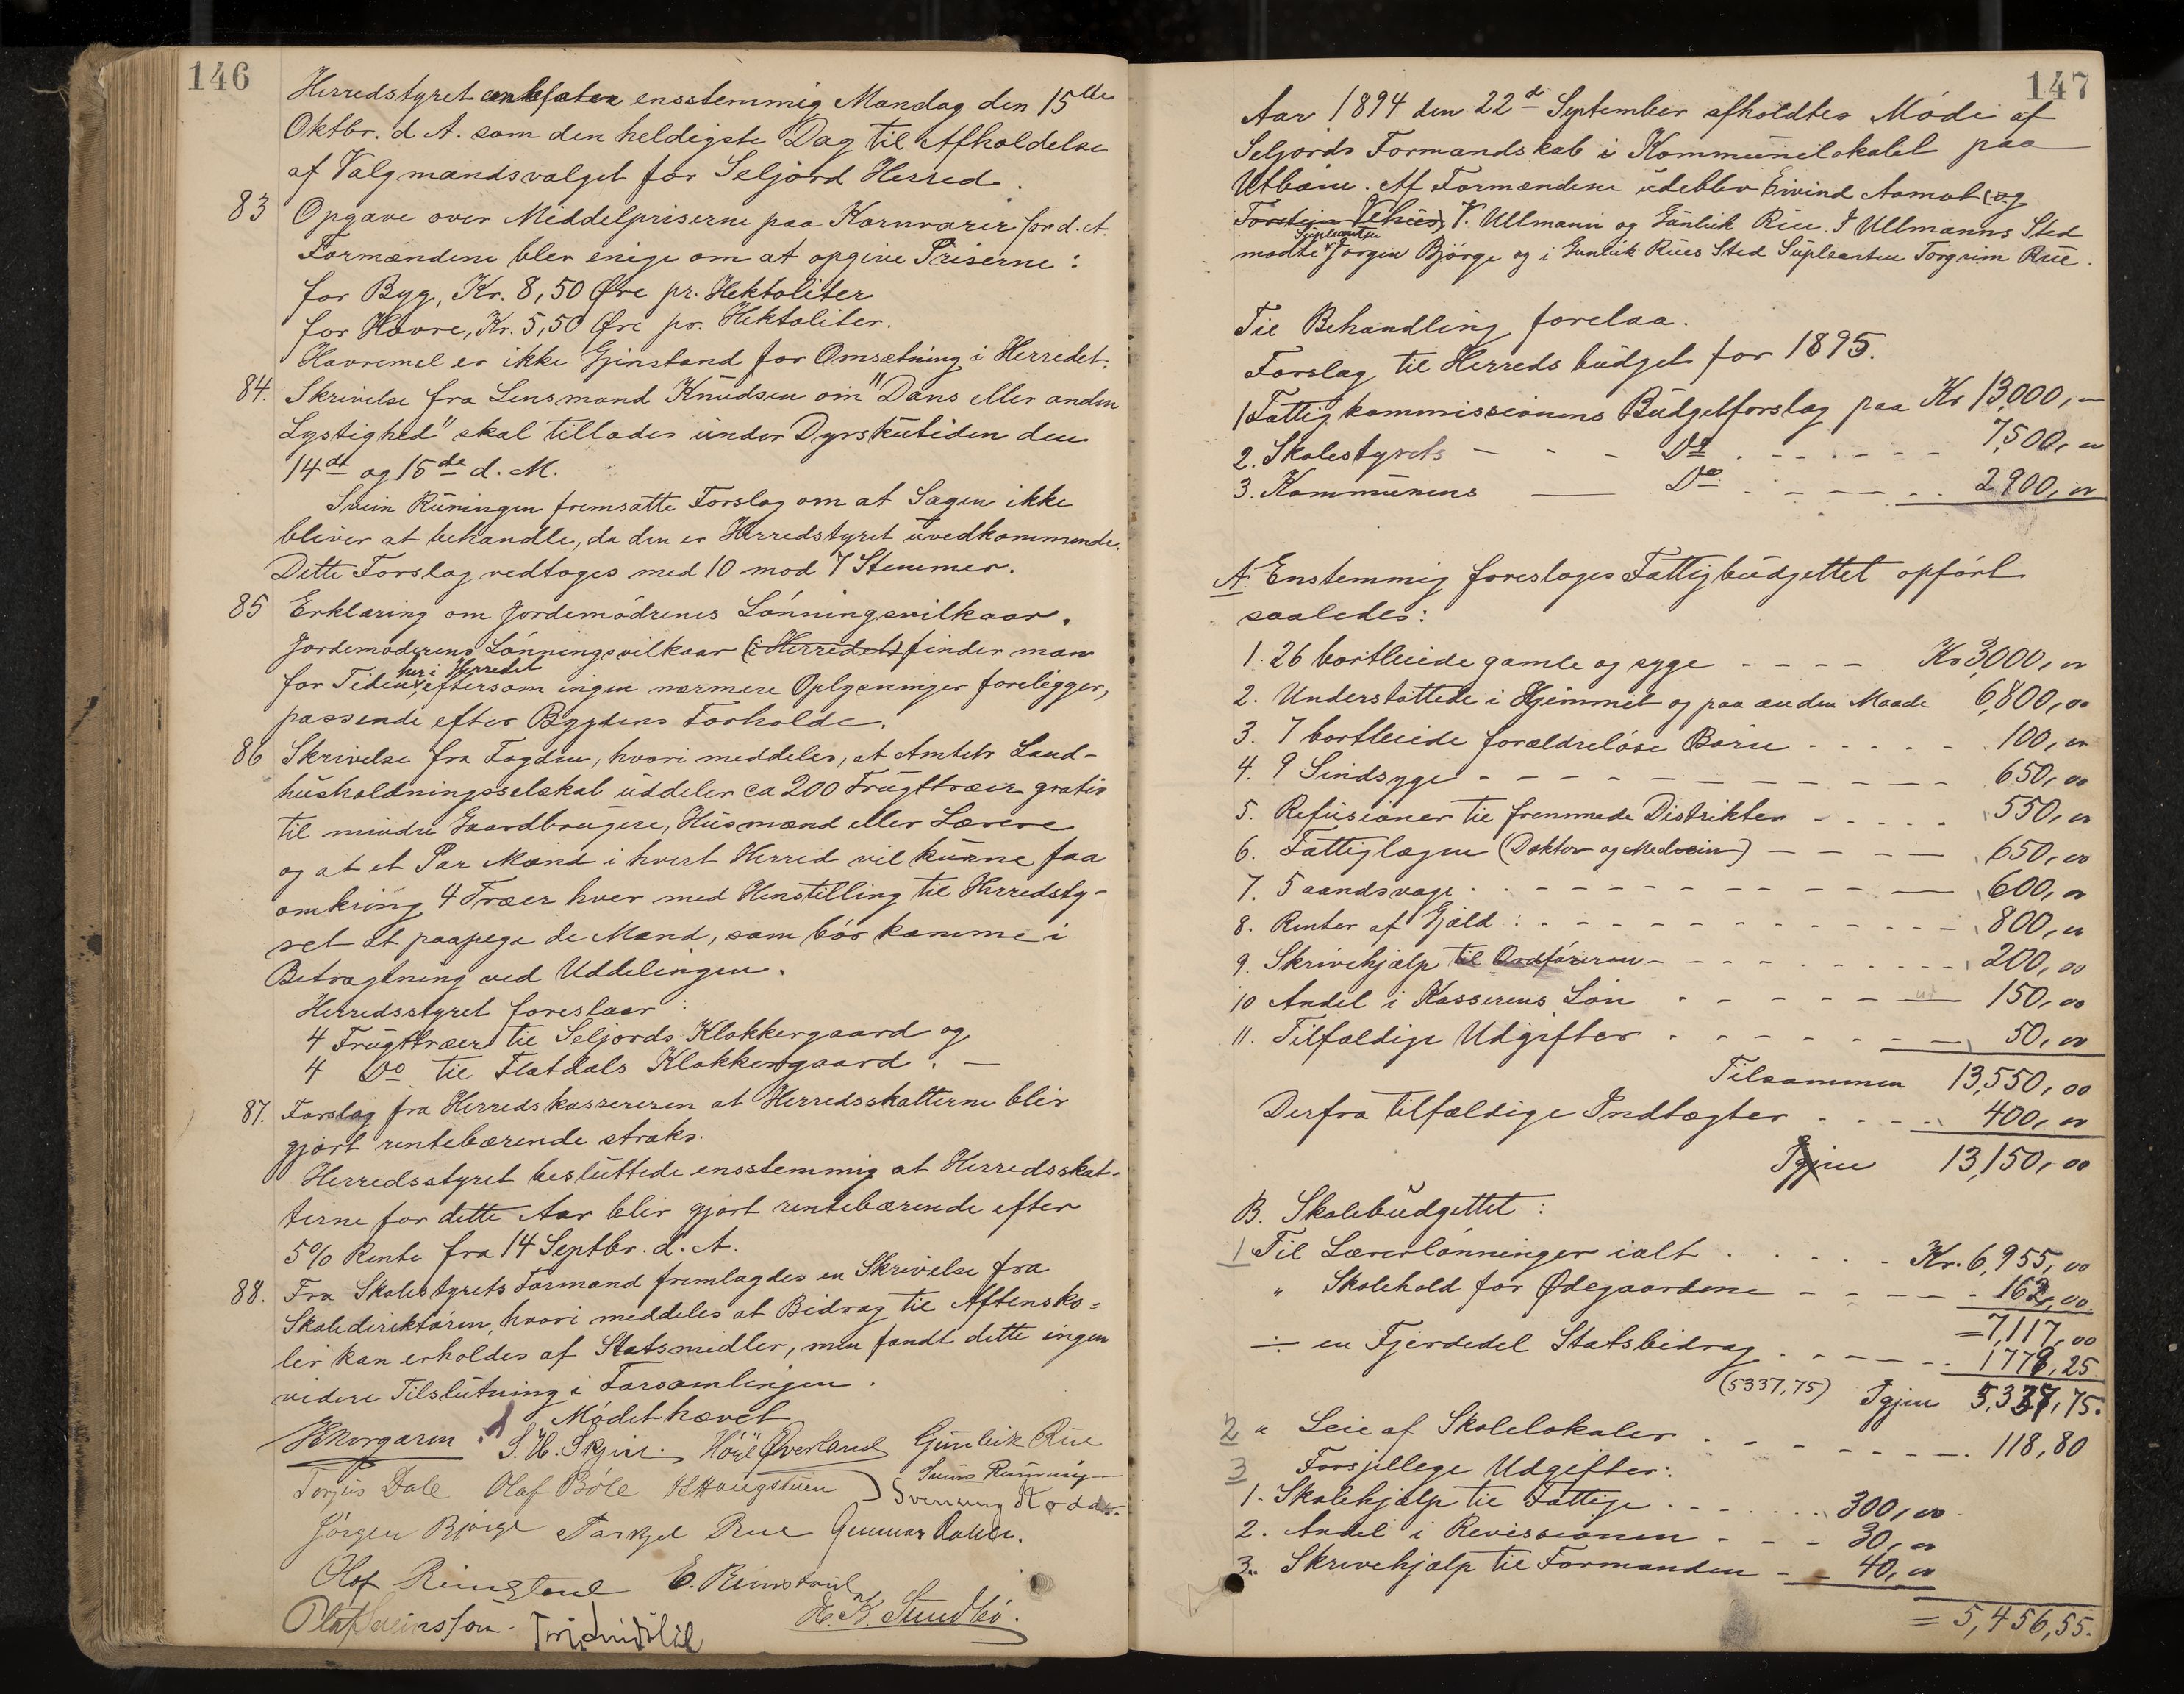 146
Herredstyret anbefater ensstemmig Mandag den 15de
Oktbr. d A. som den heldigste Dag til Afholdelse
af Valgmandsvalget for Seljord Herred.
83 Opgave over Middelpriserne paa Kornvarer for d. A.
Formændene blev enige om at opgive Priserne:
for Byg, Kr. 8,50 Øre pr. Hektoliter
for Havre, Kr. 5,50 Øre pr. Hektoliter.
Havremel er ikke Gjenstand for Omsætning i Herredet.
84. Skrivelse fra Lensmand Knudsen om "Dans eller anden
Lystighed" skal tillades under Dyrskutiden den
14de og 15de d. M.
Svein Runingen fremsatte Forslag om at Sagen ikke
bliver at behandle, da den er Herredstyret uvedkommende.
Dette Forslag vedtoges med 10 mod 7 Stemmer.
85 Erklæring om Jordemødrenes Lønningsvilkaar.
Jordemoderens Lønningsvilkaar (i Herredet) finder man
her i Herredet
for Tiden, eftersom ingen nærmere Oplysninger foreligger,
passende efter Bygdens Forholde.
86 Skrivelse fra Fogden, hvori meddeles, at Amtets Land-
husholdningsselskab uddeler ca 200 Frugttræer gratis
til mindre Gaardbrugere, Husmænd eller Lærere
og at et Par Mænd i hvert Herred vil kunne faa
omkring 4 Træer hver med Henstilling til Herredsty-
ret at paapege de Mænd, som bør komme i
Betragtning ved Uddelingen.
Herredsstyret foreslaar:
4 Frugttræer til Seljords Klokkergaard og
4 Do til Flatdals Klokkergaard. —
87. Forslag fra Herredskassereren at Herredsskatterne blir
gjort rentebærende straks.
Herredsstyret besluttede ensstemmig at Herredsskat-
terne for dette Aar blir gjort rentebærende efter
5% Rente fra 14 Septbr. d. A.
88. Fra Skolestyrets Formand fremlagdes en Skrivelse fra
Skoledirektøren, hvori meddeles at Bidrag til Aftensko=
ler kan erholdes af Statsmidler, men fandt dette ingen
videre Tilslutning i Forsamlingen.
Mødet hævet
S. H. Skjin. Høye Øverland Gunleik Rue
Torjus Dale Olaf Bøle Svein Runing
Svenung
Jørgen Bjørge Tarkjel Rue Gunnar
Olaf E. Rinstaul
Olaf Sveinsson. H. K. Sundbø.
147
Aar 1894 den 22de September afholdtes Møde af
Seljords Formandskab i Kommunelokalet paa
Utbøen. Af Formændene udeblev Eivind Aamot (og
Torstein Vehus) V. Ullmann og Gunleik Rue. I Ullmanns Sted
Supleanten
mødte Jørgen Bjørge og i Gunleik Rues Sted Supleanten Torgrim Rue.
Til Behandling forelaa.
Forslag til Herredsbudget for 1895.
1 Fattigkommissionens Budgetforslag paa Kr 13,000,00
2. Skolestyrets — - - Do - - - - - 7,500,00
3. Kommunens — Do - - - - 2900,00
A. Enstemmig foreslages Fattigbudgettet opført
saaledes:
1. 26 bortleiede gamle og syge - - - - Kr 3,000,00
2. Understøttede i Hjemmet og paa anden Maade 6,800,00
3. 7 bortleiede forældreløse Børn - - - - - 100,00
4. 9 Sindsyge - - - - - - - - - 650,00
5. Refusioner til fremmede Distrikter - - - - - 550,00
6. Fattiglægen (Doktor og Medecin) - - - - 650,00
7. 5 aandsvage - - - - - - - - - 600,00
8. Renter af Gjæld: - - - - - - - - - 800,00
9. Skrivehjælp til Ordføreren - - - - - - - 200,00
10 Andel i Kasserens Løn - - - - - - 150,00
11. Tilfældige Udgifter - - - - - - 50,00
Tilsammen 13,550,00
Derfra tilfældige Indtægter - - - - 400,00
Igjen 13,150,00
B. Skolebudgettet:
1 Til Lærerlønninger ialt - - - - Kr. 6,955,00
" Skolehold for Ødegaardene - - - - - 162,00
= 7,117,00
÷ en Fjerdedel Statsbidrag - - - - - 1779,25
(5337,75) Igjen 5,337,75.
2 " Leie af Skolelokaler - - - - - - - 118,80
3 Forsjellege Udgifter:
1. Skolehjælp til Fattige - - - - - 300,00
2. Andel i Revissionen - - - 30,00
3. Skrivehjælp til Formanden - - 40,00
= 5,456,55.